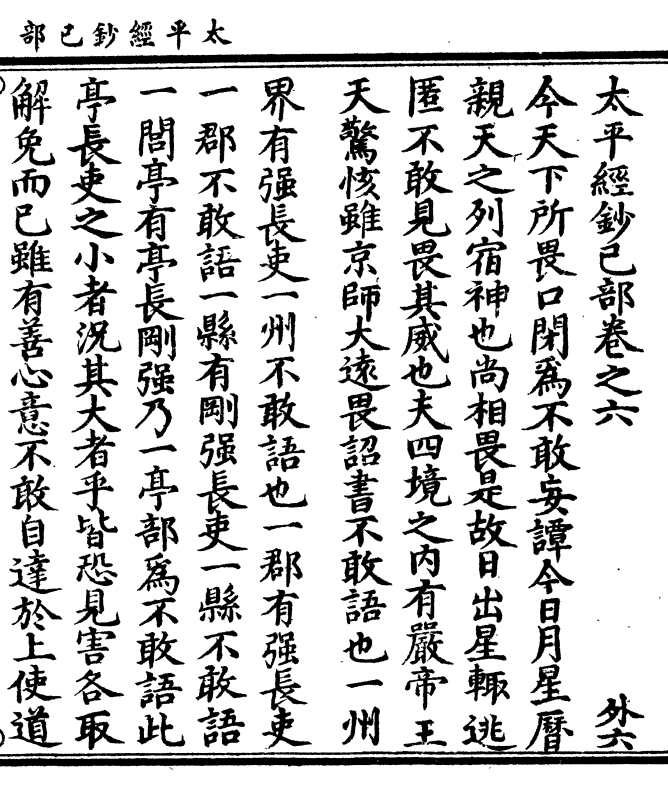 太平經鈔已部
太平經鈔已部卷之六
外六
今天下所畏口閉爲不敢妄譚今日月星曆
親天之列宿神也尚相畏是故日出星輙逃
匿不敢見畏其威也夫四境之内有嚴帝王
天驚恢雖京師大遠畏詔書不敢語也一州
界有强長吏一州不敢語也一郡有强長吏
一郡不敢語一縣有剛强長吏一縣不敢語
一閭亭有亭長剛强乃一亭部爲不敢語此
亭長吏之小者況其大者乎皆恐見害各取
解免而已雖有善心意不敢自達於上使道